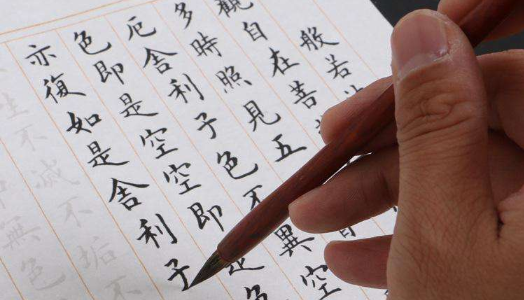 般若
觀自在菩
多時照見五
厄舍利子色不異空
色即是空空即是色
亦復如是舍利子
不滅不垢
無色